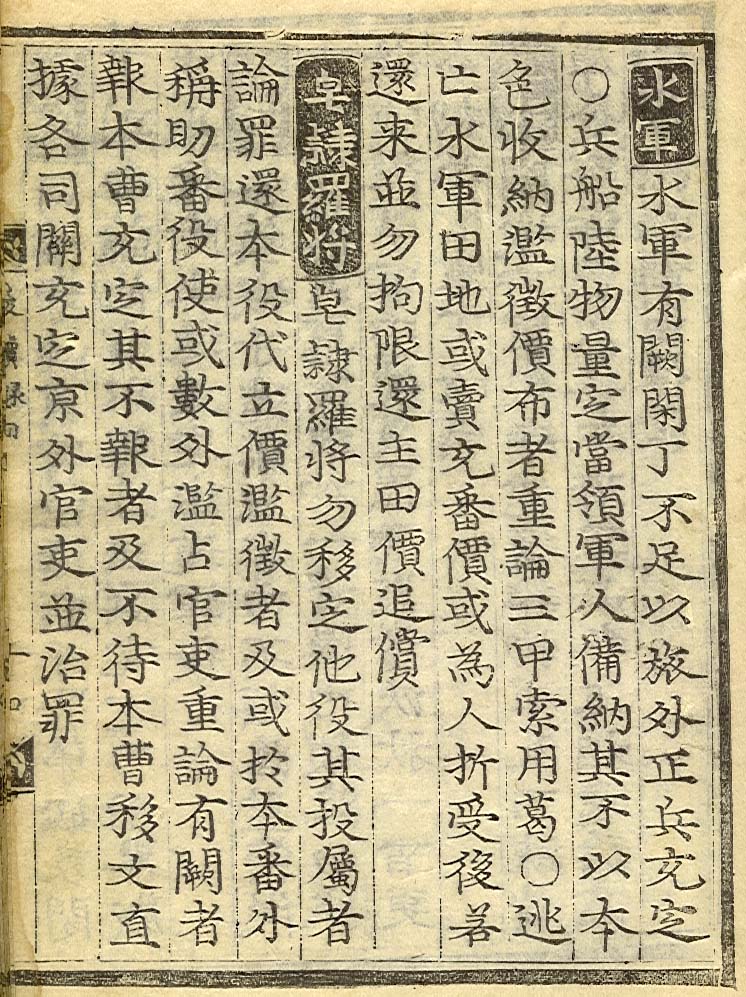 水軍 水軍有闕閑丁不足以旅外正兵充定
○兵船陸物量定當領軍人備納其不以本
色收納濫徵價布者重論三甲索用葛○逃
亡水軍田地或賣充番價或為人折受後若
還来並勿拘限還主田價追償
皂隷羅將 皂隷羅將勿移定他役其投屬者
論罪還本役代立價濫徵者及或扵本番外
稱助番役使或數外濫占官吏重論有闕者
報本曹充定其不報者及不待本曹移文直
據各司關充定京外官吏並治罪